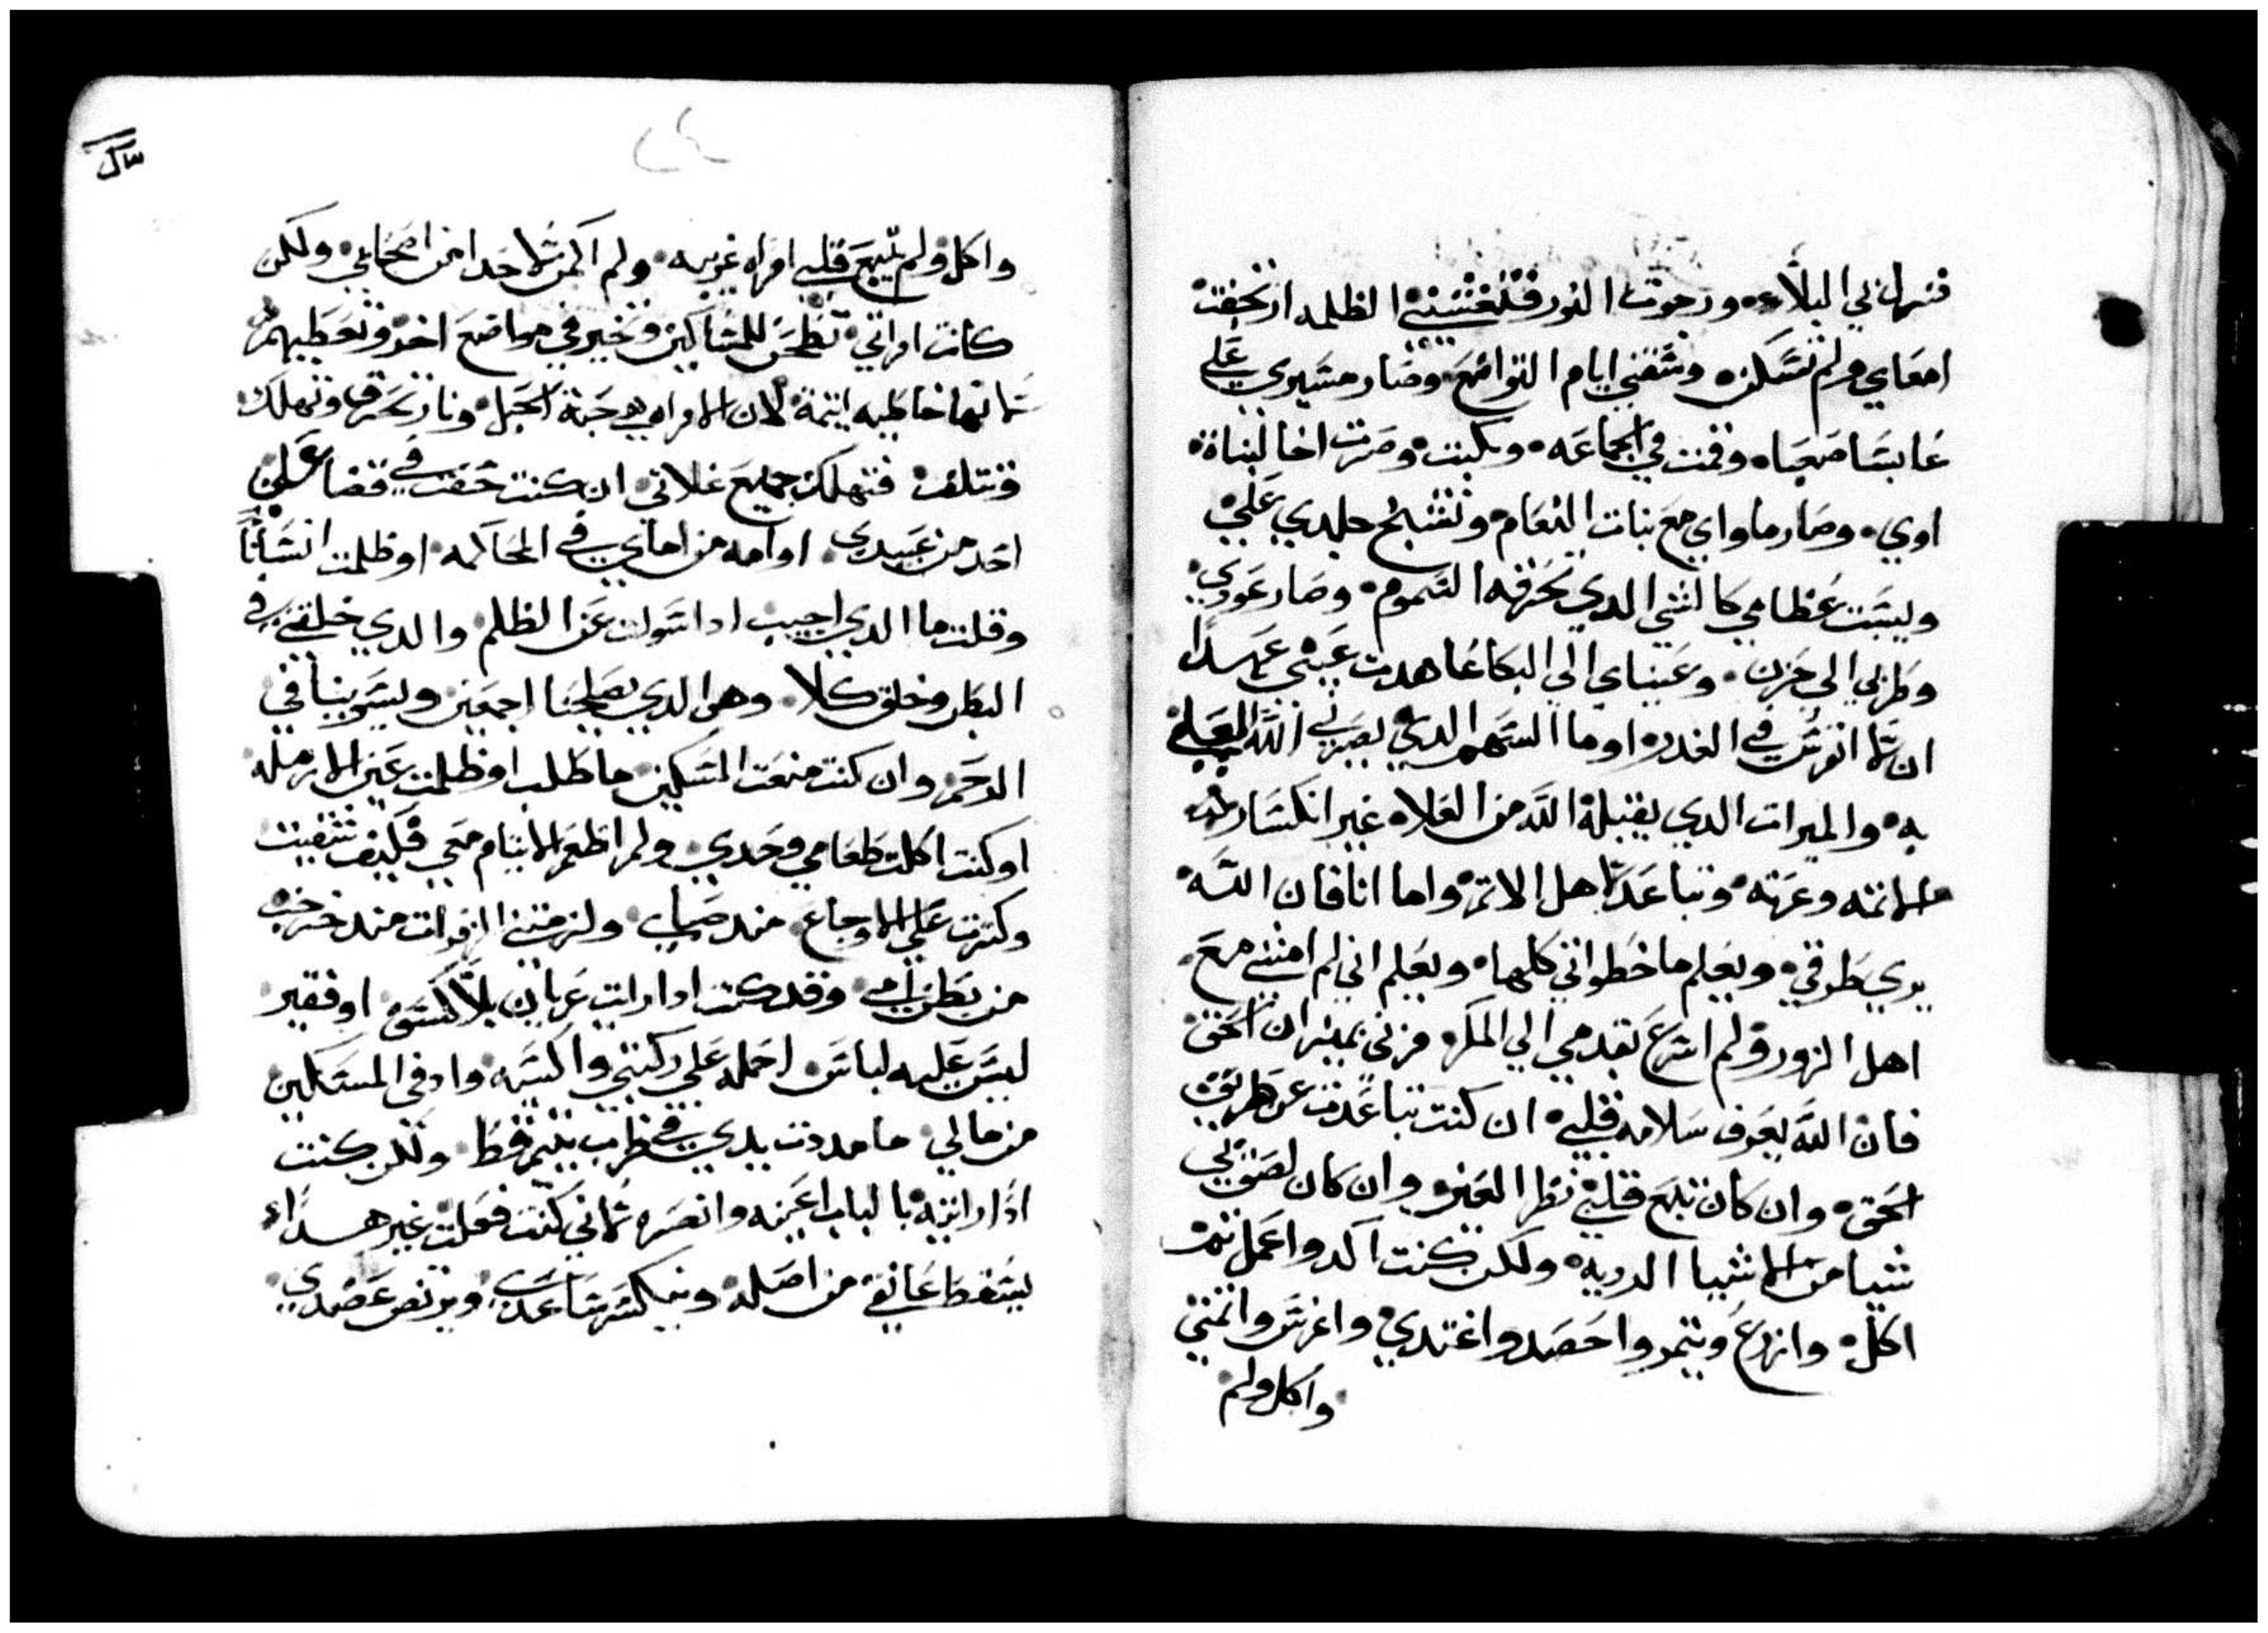 فنزل بي البلاء ورجوت النور فتغشتني الظلمه ارتجفت
امعاي ولم تسكن وشفني ايام التواضع وصار مسيري علي
عابسا صعبا وقمت في الجماعه وبكيت وصرت اخا لبناة
اوي وصار ماواي مع بنات النعام وتشيخ جلدي علي
ويبست عظامي كالشي الدي تحرقه السموم وصار عودي
وطربي الي حزن وعيناي الي البكا عاهدت عيني عهدا
ان لا اتفرس في العدرا وما السهم الدي يصيرني الله العلي
به والميرات الدي يقبله الله من العلا غير انكسار
الاتمه وعزته وتباعد اهل الاتم واما انا فان الله
يري طرقي ويعلم ما خطواتي كلها ويعلم اني لم امشي مع
اهل الزور ولم اسرع بقدمي الي المكر فزني بميزان الحق
فان الله يعرف سلامه قلبي ان كنت تباعدت عن طريق
الحق وان كان تبع قلبي نظر العين وان كان لصق بي
شيا من الاشيا الرديه ولكن كنت اكد واعمل ثم
اكل وازرع ويتمر واحصد واغتدي واغرس واتمني
واكل ولم
سال
٤٤
واكل ولم يتبع قلبي امراه غريبه ولم اكمن لاحدا من اصحابي ولكن
كانت امراتي تطحن للمساكين وتخبر في مواضع اخر وتعطيهم
كانها خاطيه اتيمة لان الامراه هي جبة الجبل ونار تحرق وتهلك
وتتلف فتهلك جميع غلاتي ان كنت خفت في قضا علي
احد من عبيدي او امه من اماي في المحاكمه او ظلمت انسانا
وقلت ما الدي اجيب ادا سولت عن الظلم والدي خلقني في
البطن وخلق كلا وهو الدي يصلحنا اجمعين ويسويينا في
الرحم وان كنت منعت المسكين ما طلب او ظلمت عين الارمله
او كنت اكلت طعامي وحدي ولم اطعم الايتام معي فكيف شقيت
وكترت علي الاوجاع مند صباي ولزمتني الزفرات مند خرجت
من بطن امي وقد كنت ادا رايت عريان بلا كسوة او فقير
ليس عليه لباس احمله علي ركبتي واكسيه وادفي المسكين
من مالي ما مددت يدي في ظرب يتيم قط ولكن كنت
ادا رايته بالباب اعينه وانصره كاني كنت فعلت غير هدا
يسقط عاتقي من اصله وينكسر ساعدي ويرتض عضدي